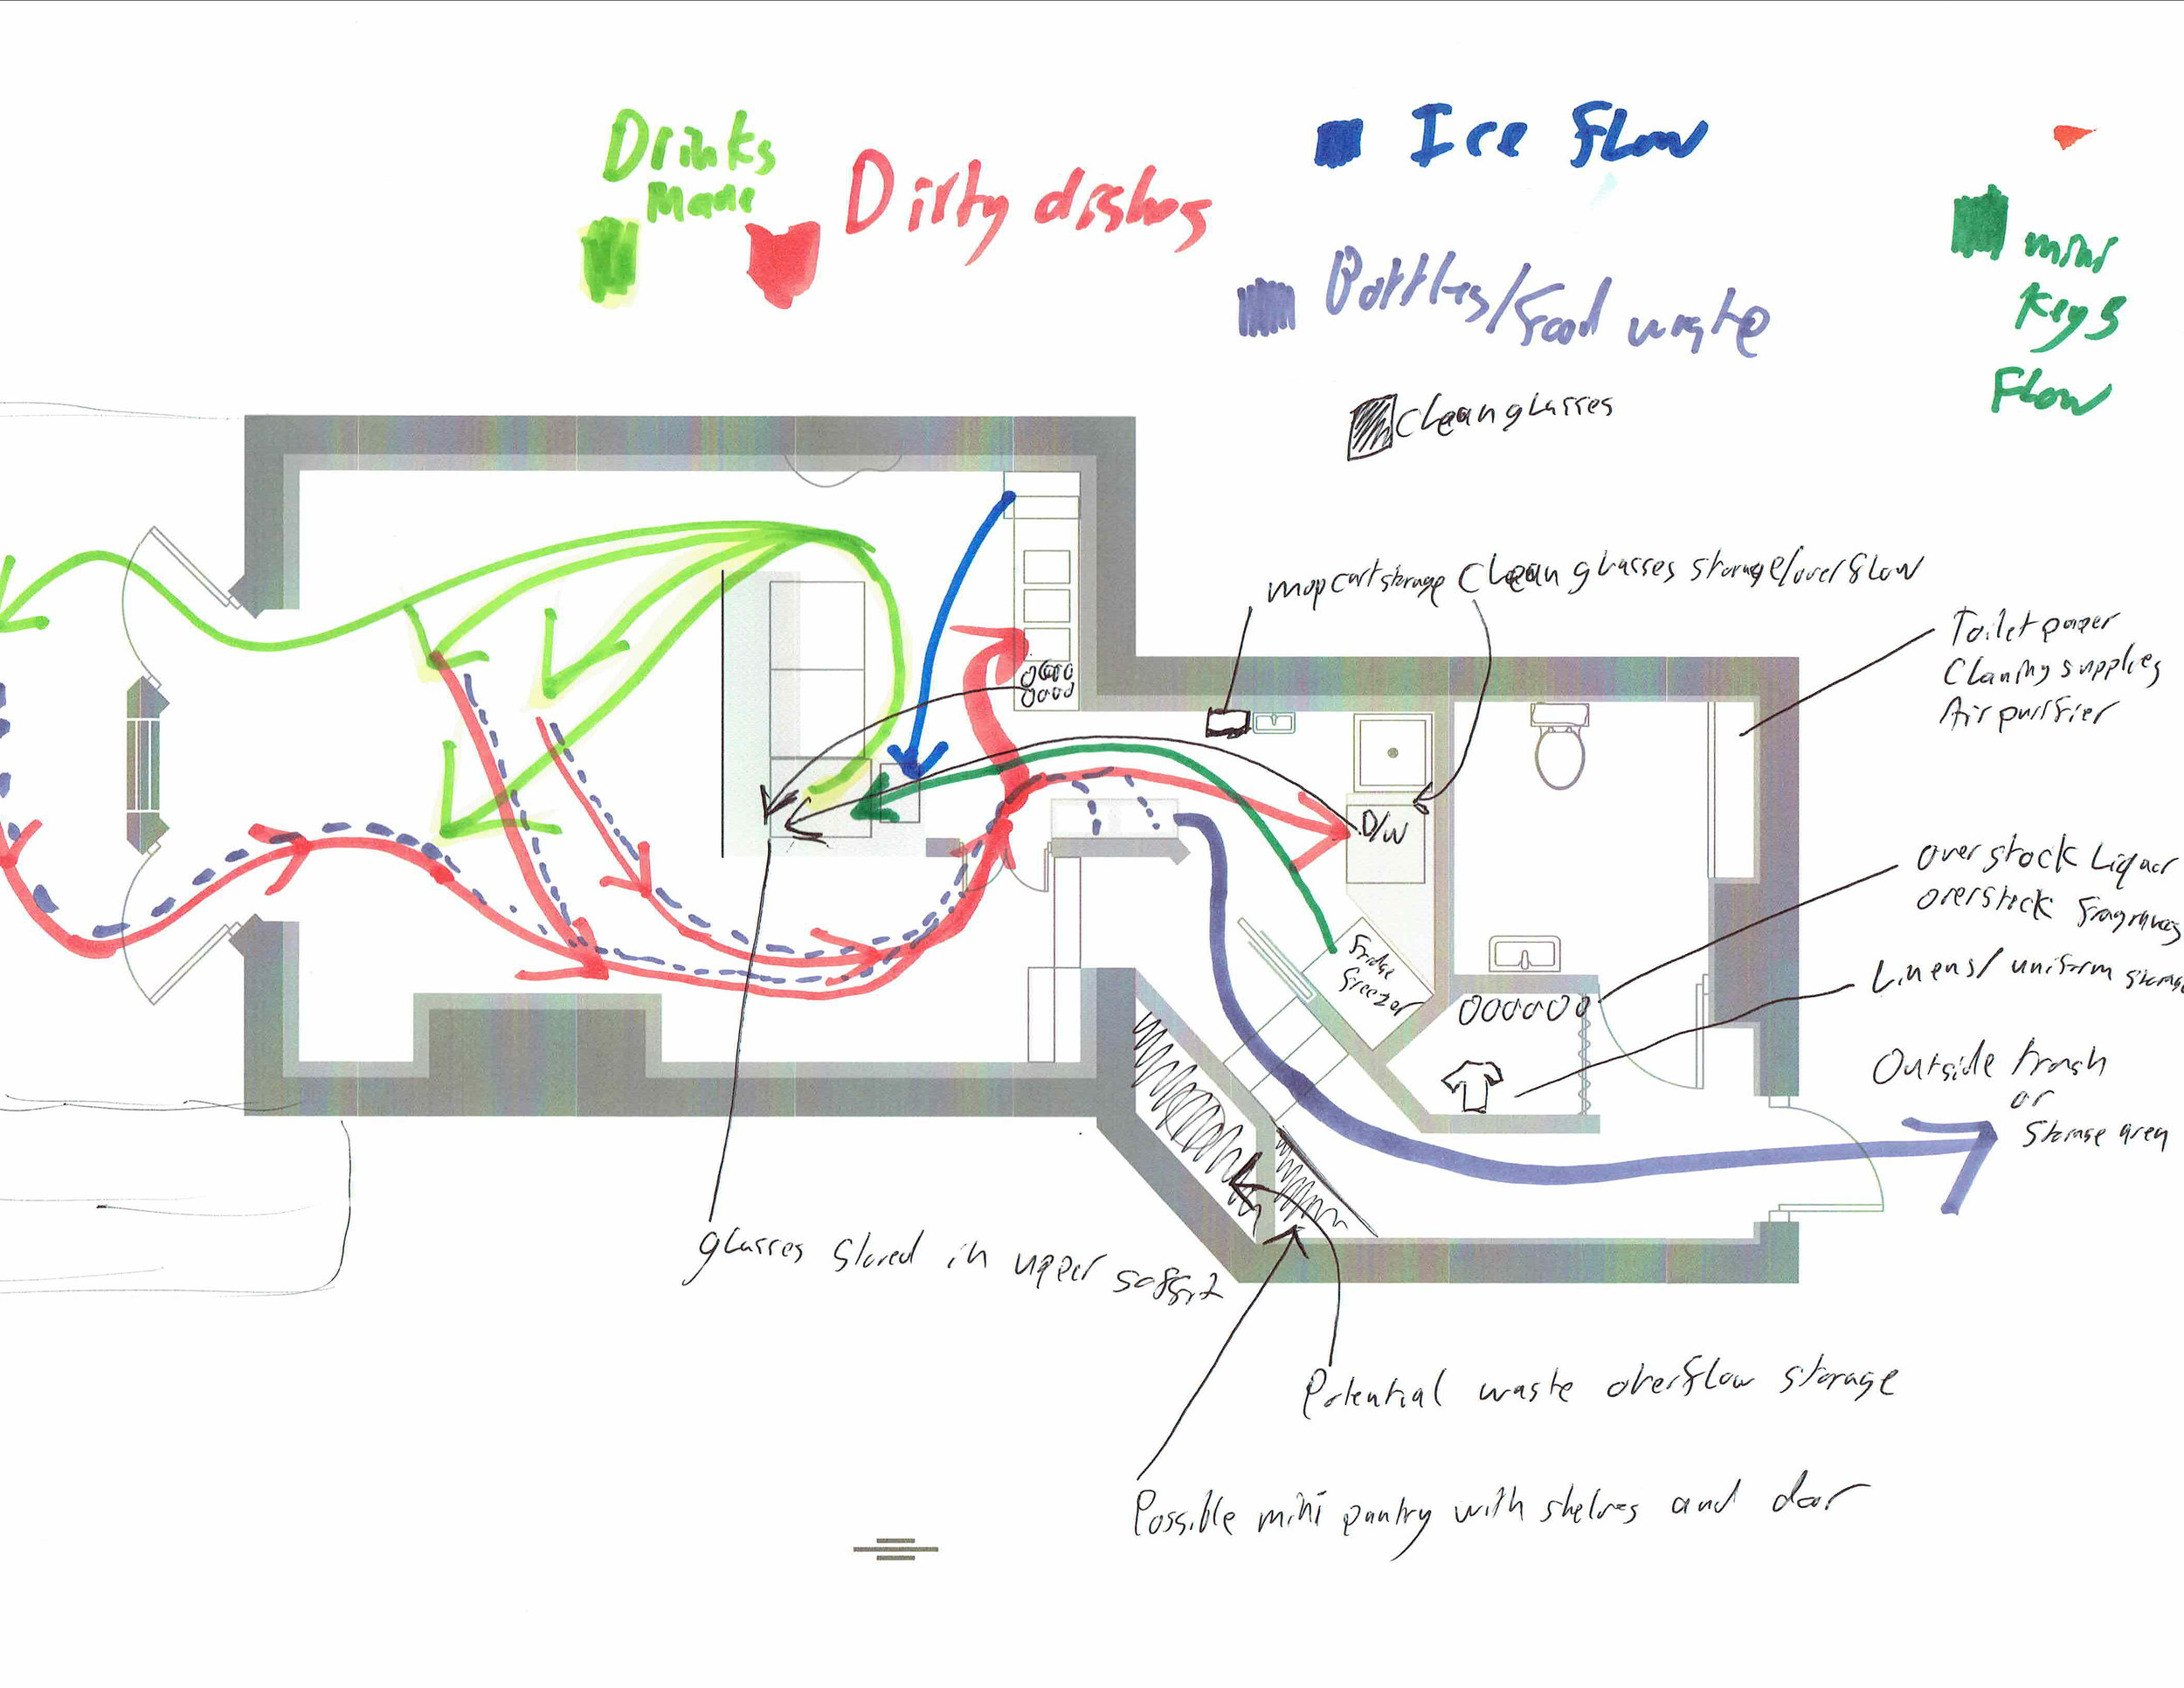 Drinks
Made
Dirty dishes
Ice flow
Bottles/food waste
clean glasses
mini
kegs
Flow
mop cart storage
Clean glasses storage/overflow
Toilet paper
Claning supplies
Air purifier
D/W
over stock Liquor
overstock
Fridge
freezer
Linens/ uniform storage
Outside trash
or
Storage area
glasses stored in upper soffit
Potential waste overflow storage
Possible mini pantry with shelves and door